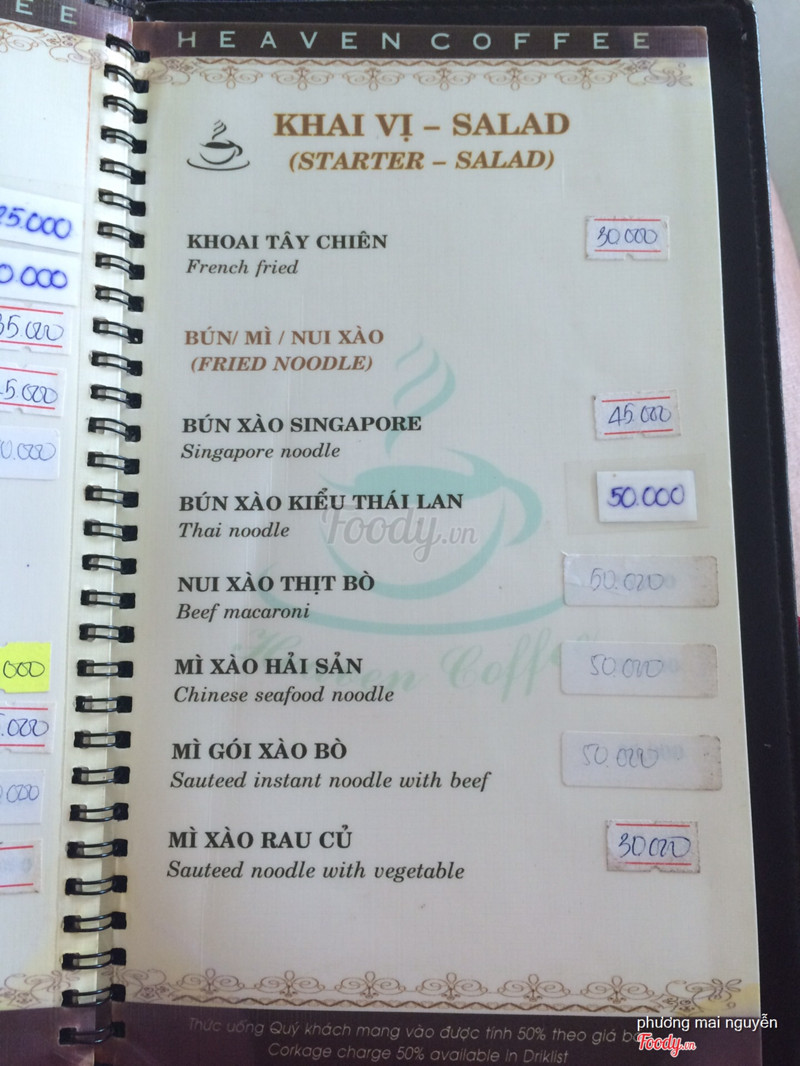 E E
HEAVEN COFFEE
KHAI VỊ – SALAD
(STARTER – SALAD)
25.000
KHOAI TÂY CHIÊN
30.000
French fried
0.000
35.000
BÚN/ MÌ / NUI XÀO
(FRIED NOODLE)
5.000
BÚN XÀO SINGAPORE
45.000
Singapore noodle
0.000
BÚN XÀO KIỂU THÁI LAN
50.000
Thai noodle
Foody.vn
NUI XÀO THỊT BÒ
50.000
Beef macaroni
Heaven Coffee
000
MÌ XÀO HẢI SẢN
50.000
Chinese seafood noodle
5.000
MÌ GÓI XÀO BÒ
50.000
Sauteed instant noodle with beef
000
MÌ XÀO RAU CỦ
30.000
Sauteed noodle with vegetable
Thức uống Quý khách mang vào được tính 50% theo giá
phương mai nguyễn
Foody.vn
Corkage charge 50% available in Driklist